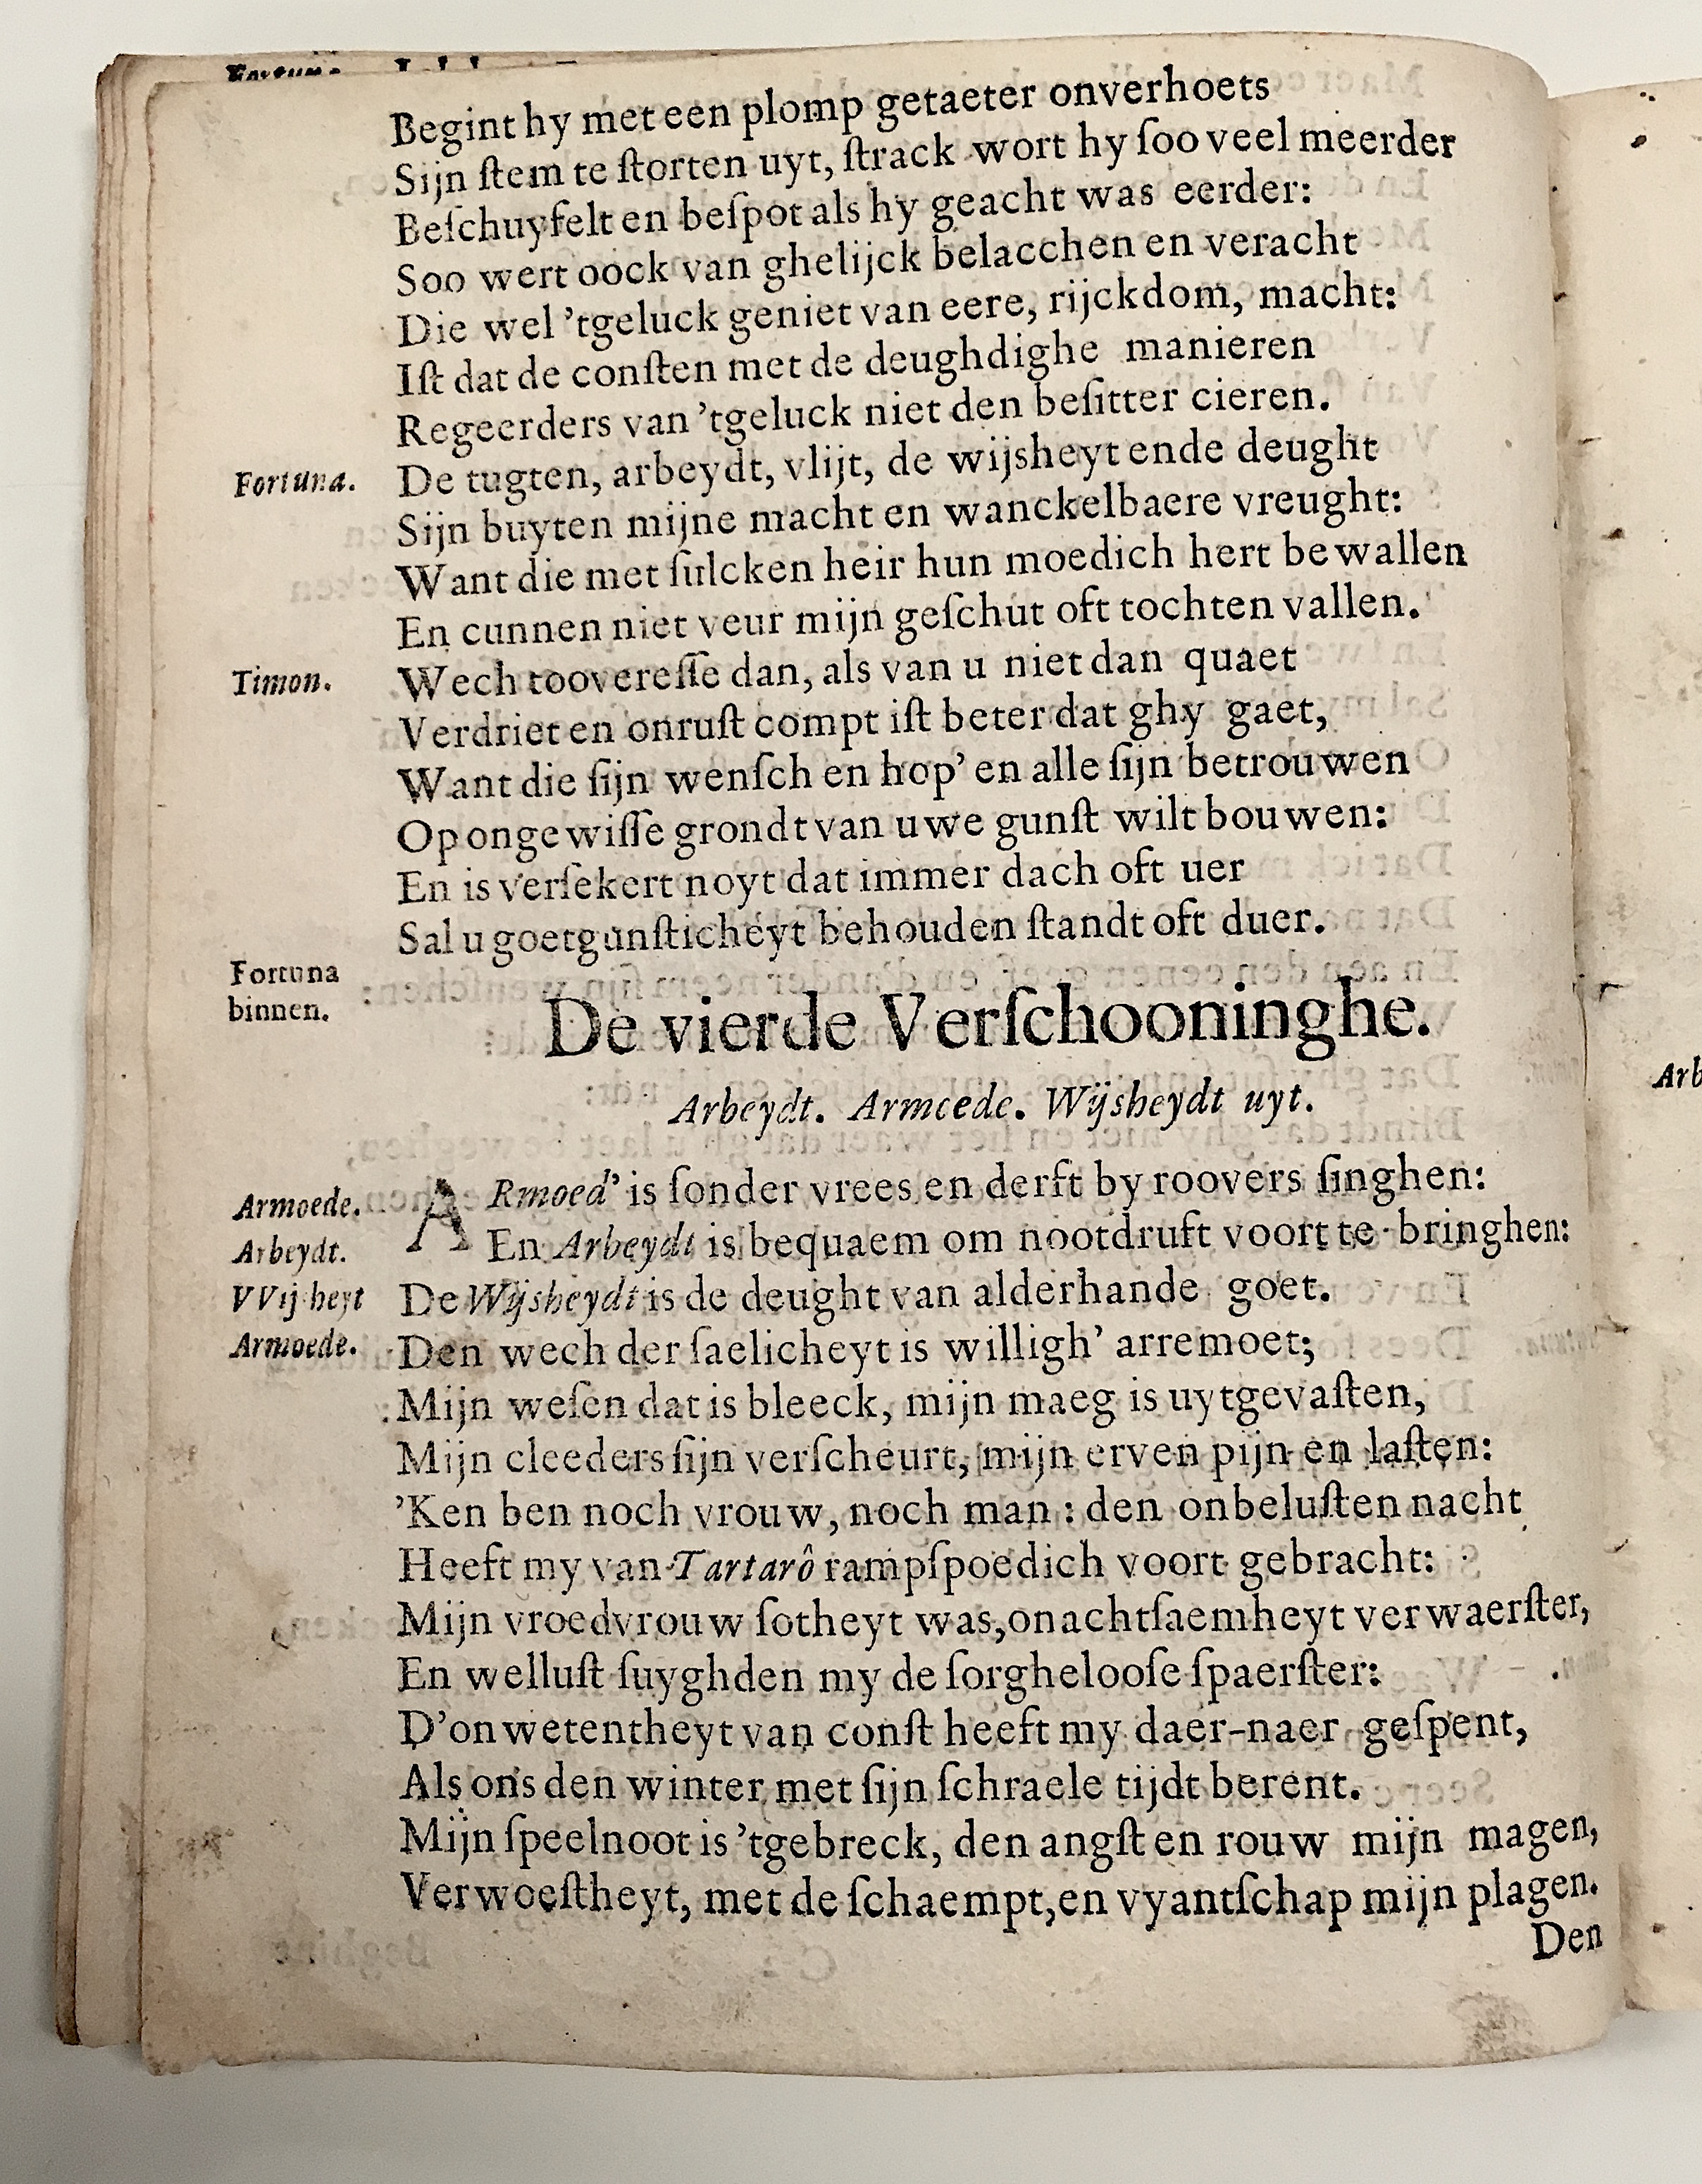 Begint hy met een plomp getaeter onverhoets
Sijn ſtem te ſtorten uyt, ſtrack wort hy ſoo veel meerder
Beſchuyfelt en beſpot als hy geacht was eerder:
Soo wert oock van ghelijck belacchen en veracht
Die wel 'tgeluck geniet van eere, rijckdom, macht:
Iſt dat de conſten met de deughdighe manieren
Regeerders van 'tgeluck niet den beſitter cieren.
Fortuna. De tugten, arbeydt, vlijt, de wijsheyt ende deught
Sijn buyten mijne macht en wanckelbaere vreught:
Want die met ſulcken heir hun moedich hert bewallen
En cunnen niet veur mijn geſchut oft tochten vallen.
Timon. Wech toovereſſe dan, als van u niet dan quaet
Verdriet en onruſt compt iſt beter dat ghy gaet,
Want die ſijn wenſch en hop' en alle ſijn betrouwen
Op ongewiſſe grondt van uwe gunſt wilt bouwen:
En is verſekert noyt dat immer dach oft uer
Sal u goetgunſticheyt behouden ſtandt oft duer.
Fortuna
binnen.
De vierde Verſchooninghe.
Arbeydt. Armoede. Wijsheydt uyt.
Armoede. ARmoed' is ſonder vrees en derft by roovers ſinghen:
Arbeydt. En Arbeydt is bequaem om nootdruft voort te bringhen:
VVijsheyt De Wijsheydt is de deught van alderhande goet.
Armoede. Den wech der ſaelicheyt is willigh' arremoet;
Mijn weſen dat is bleeck, mijn maeg is uytgevaſten,
Mijn cleeders ſijn verſcheurt, mijn erven pijn en laſten:
'Ken ben noch vrouw, noch man: den onbeluſten nacht
Heeft my van Tartarô rampſpoedich voort gebracht:
Mijn vroedvrouw ſotheyt was, onachtſaemheyt verwaerſter,
En welluſt ſuyghden my de ſorgheloose ſpaerſter:
D'onwetentheyt van conſt heeft my daer-naer geſpent,
Als ons den winter met ſijn ſchraele tijdt berent.
Mijn ſpeelnoot is 'tgebreck, den angſt en rouw mijn magen,
Verwoeſtheyt, met de ſchaempt, en vyantſchap mijn plagen.
Den
Arb